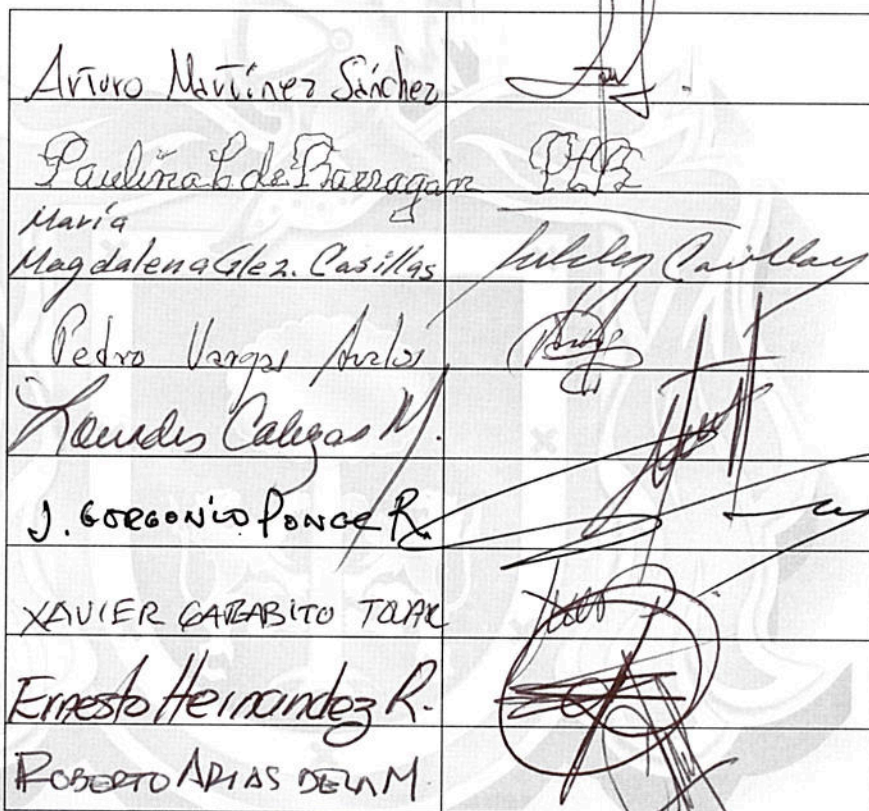 Arturo Martínez Sánchez
Paulina L de Barragán PLB
María
Magdalena Glez. Casillas Casillas
Pedro Vargas Avalos
Lourdes Calezas M.
J. GORGONIO PONCE R
XAVIER GARABITO TOVAR
Ernesto Hernandez R.
ROBERTO ARIAS DE LA M.